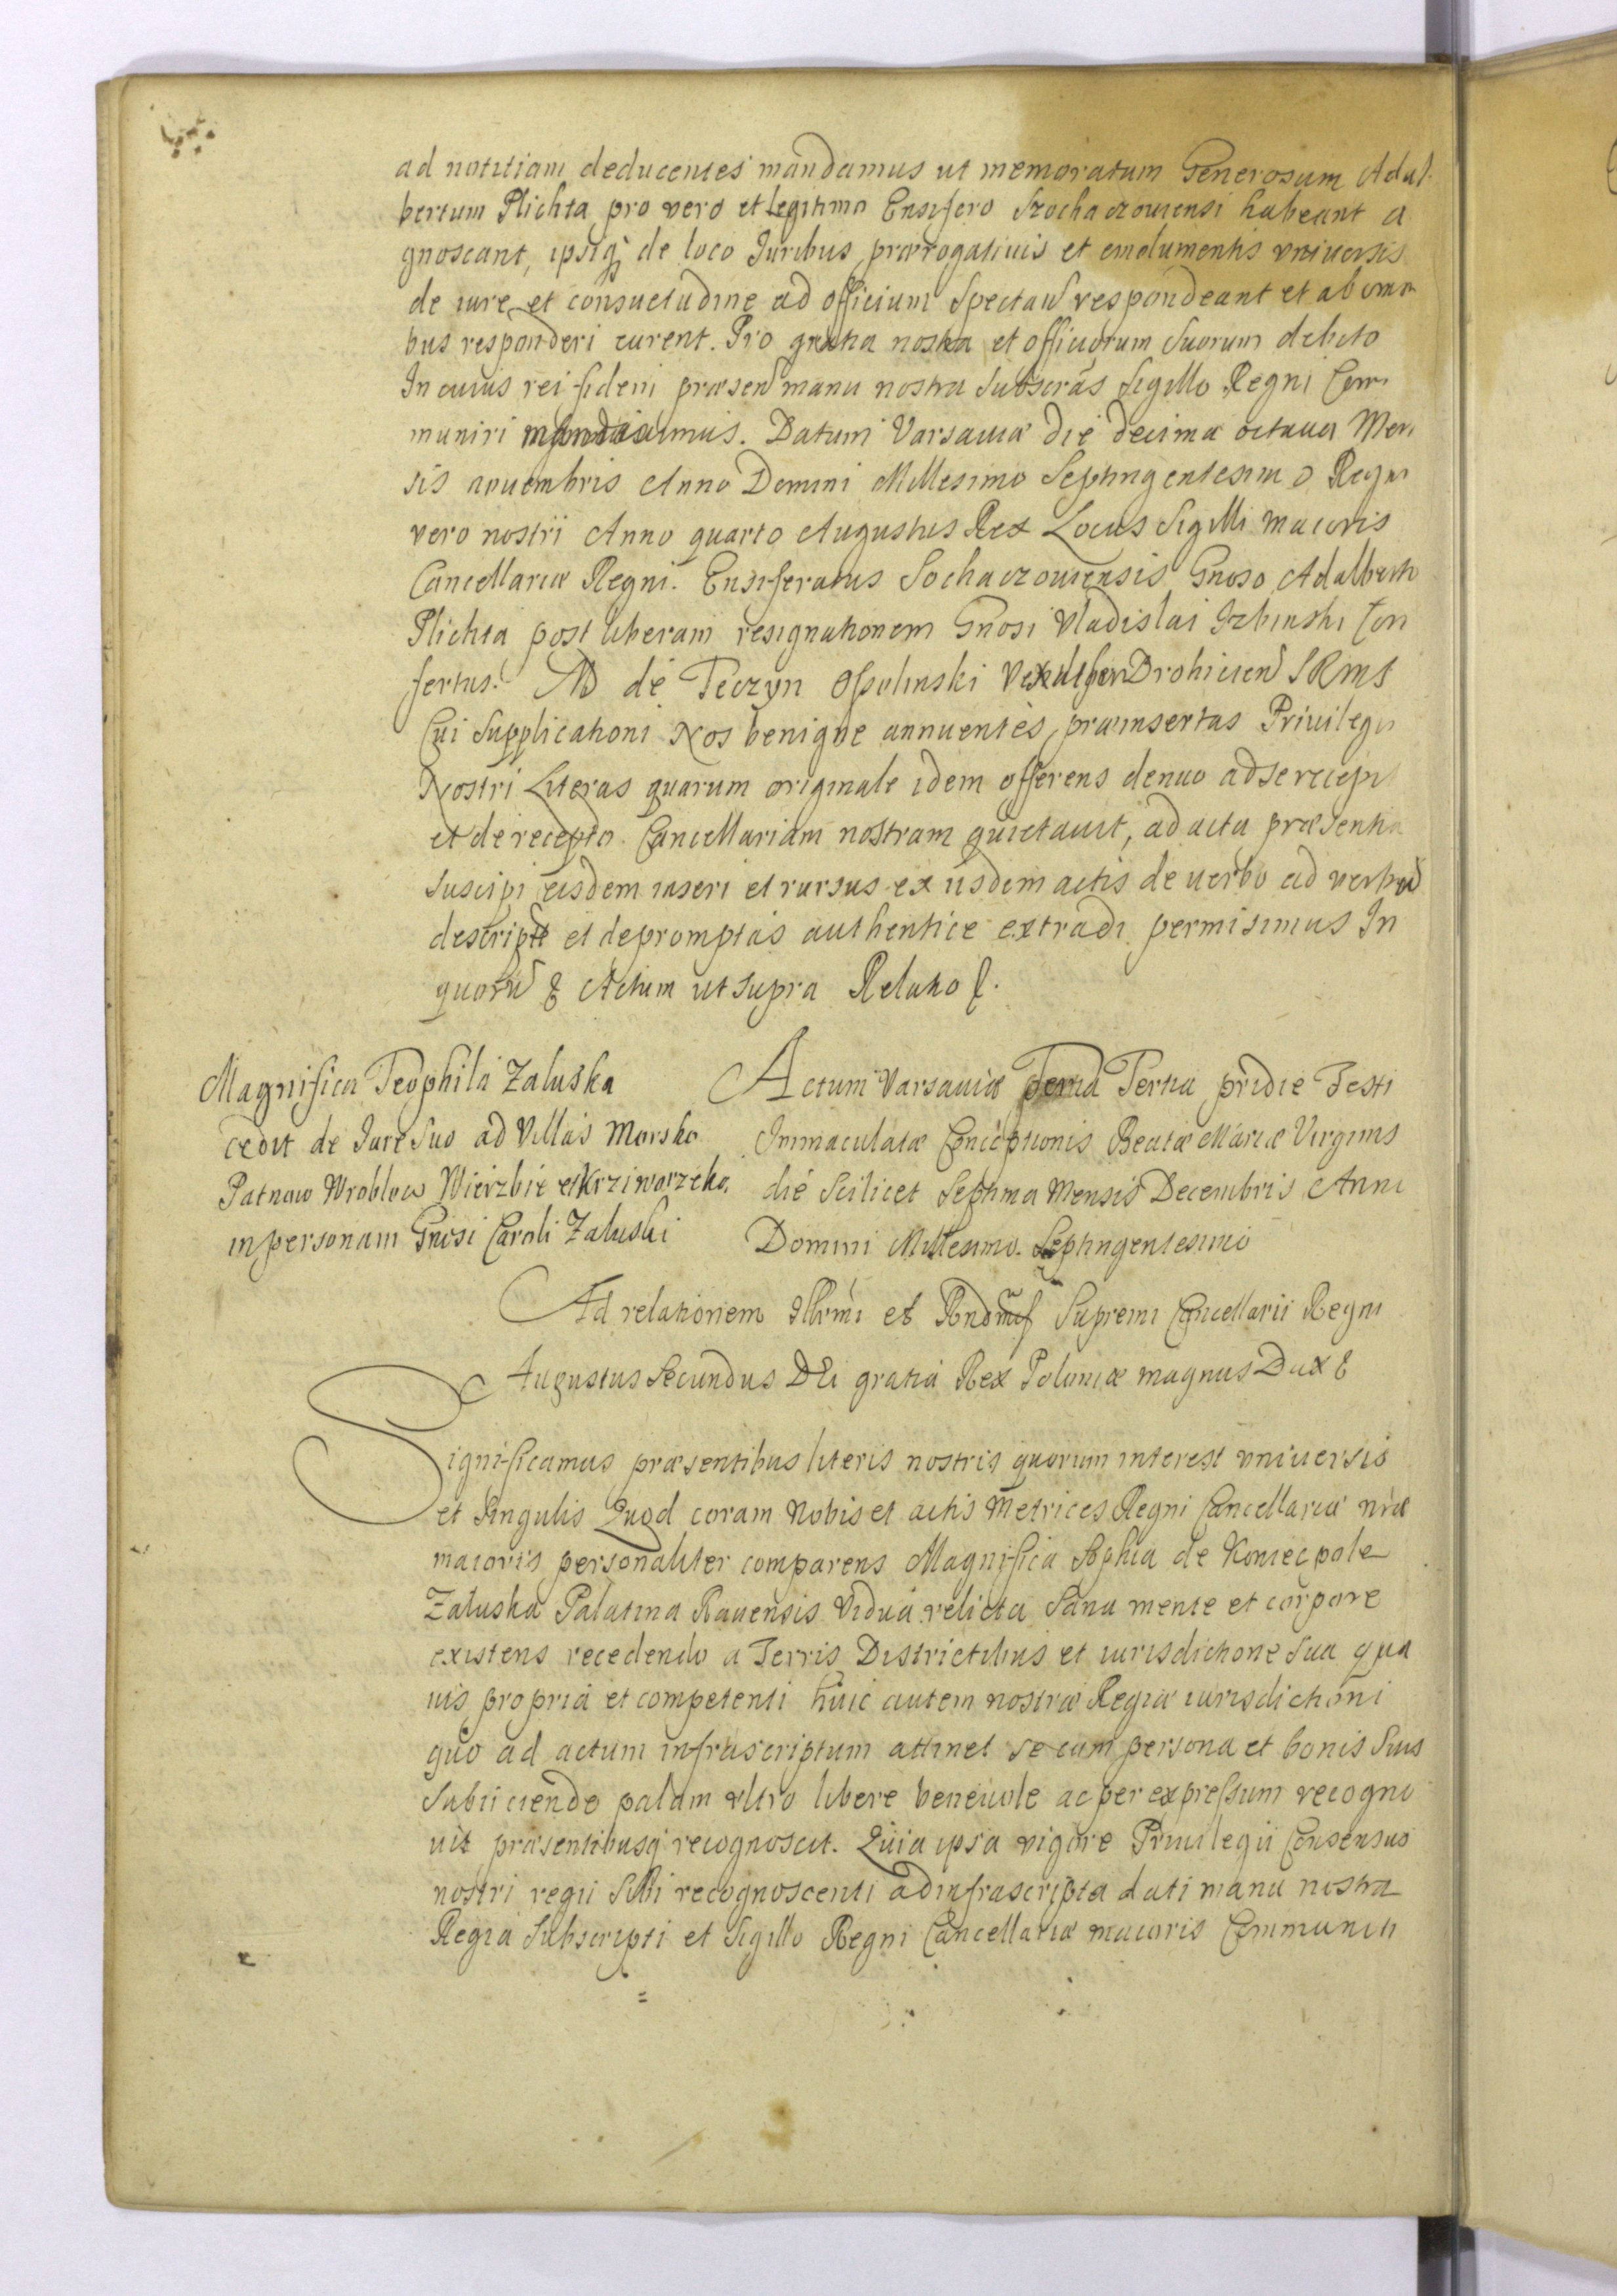 ad notitiam deducentes mandamus ut memoratum Generosum Adal-
bertum Plichta pro vero et legitimo Ensifero Szochaczouiensi habeant a
gnoscant, ipsiq de loco Juribus prærogatiuis et emolumentis vniuersis
de iure et consuetudine ad officium Spectan respondeant et ab omni
bus responderi curent. Pro gratia nostra et officiorum Suorum debito
In cuius rei fidem præsen manu nostra Subscras Sigillo Regni Com
muniri mandauimus. Datum Varsauiæ die decima octaua Men
sis nouembris Anno Domini Millesimo Septingentesimo Regni
vero nostri Anno quarto Augustus Rex Locus Sigilli maioris
Cancellariæ Regni. Ensiferatus Sochaczouiensis Gnoso Adalberto
Plichta post liberam resignationem Gnosi Vladislai Izbinski Con
fertus. de Teczyn Osolinski Vexilifer Drohicien SRMS
Cui Supplicationi Nos benigne annuentes, præinsertas Priuilegii
Nostri Literas quarum originale idem offerens denuo ad se recepit
et de recepto Cancellariam nostram quietauit, ad acta præsentia
suscipi eisdem inseri et rursus ex iisdem actis de uerbo ad verbu
descriptas et depromptas authentice extradi permisimus In
quoru & Actum ut supra Relatio &.
Magnifica Teophila Zaluska
cedit de Jure Suo ad Villas Morsko
Patnow Wroblow Wierzbie et Krziworzeka
in personam Gnosi Caroli Zaluski
Actum Varsauiæ Feria Tertia pridie Festi
Immaculatæ Conceptionis Beatæ Mariæ Virginis
die Scilicet Septima Mensis Decembris Anni
Domini Millesimo Septingentesimo
Ad relationem Illrmi et Rndmi Supremi Cancellarii Regni
Augustus Secundus DEi gratia Rex Poloniæ magnus Dux &
Significamus præsentibus literis nostris quorum interest vniuersis
et Singulis Quod coram Nobis et actis Metrices Regni Cancellariæ nræ
maioris personaliter comparens Magnifica Sophia de Koniecpole
Zaluska Palatina Rauensis vidua relicta Sana mente et corpore
existens recedendo a Terris Districtibus et iurisdictione Sua qua
uis propria et competenti huic autem nostræ Regiæ iurisdictioni
quo ad actum infrascriptum attinet se cum persona et bonis Suis
Subiiciendo palam vltro libere beneuole ac per expressum recogno
uit præsentibusq recognoscit. Quia ipsa vigore Priuilegii Consensus
nostri regii Sibi recognoscenti ad infrascripta dati manu nostra
Regia Subscripti et Sigillo Regni Cancellariæ maioris Communiti